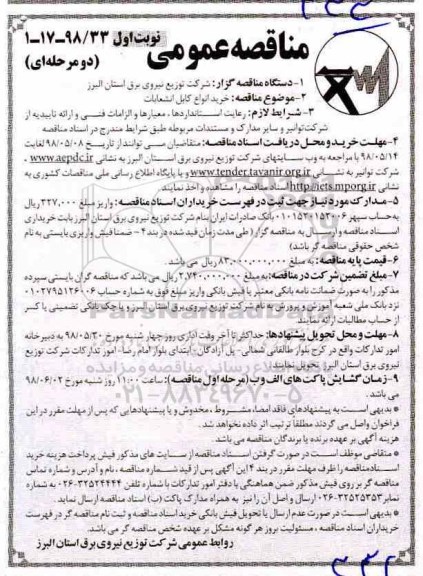 مناقصه عمومی
نوبت اول ۹۸/۳۳-۱۷-۱
(دو مرحله‌ای)
۱- دستگاه مناقصه گزار: شرکت توزیع نیروی برق استان البرز
۲- موضوع مناقصه: خرید انواع کابل انشعابات
۳- شرایط لازم: رعایت استانداردها، معیارها و الزامات فنی و ارائه تاییدیه از
شرکت توانیر و سایر مدارک و مستندات مربوطه طبق شرایط مندرج در اسناد مناقصه
۴- مهلت خرید و محل دریافت اسناد مناقصه: متقاضیان می توانند از تاریخ ۹۸/۰۵/۰۸ لغایت
۹۸/۰۵/۱۴ با مراجعه به وب سایتهای شرکت توزیع نیروی برق استان البرز به نشانی www.aepdc.ir ،
شرکت توانیر به نشانی www.tender.tavanir.org.ir و یا پایگاه اطلاع رسانی ملی مناقصات کشوری به
نشانی http://iets.mporg.ir اسناد مناقصه را مشاهده و اخذ نمایند.
۵- مدارک مورد نیاز جهت ثبت در فهرست خریداران اسناد مناقصه: واریز مبلغ ۲۲۷,۰۰۰ ریال
به حساب سپهر ۰۱۰۱۵۲۰۱۵۲۰۰۶ بانک صادرات ایران بنام شرکت توزیع نیروی برق استان البرز بابت خریداری
اسناد مناقصه و ارسال به مناقصه گزار (طی مدت زمان قید شده در بند ۴- ضمنا فیش واریزی بایستی به نام
شخص حقوقی مناقصه گر باشد)
۶- قیمت پایه مناقصه: به مبلغ ۸۳,۰۰۰,۰۰۰,۰۰۰ ریال می باشد.
۷- مبلغ تضمین شرکت در مناقصه: به مبلغ ۲,۷۴۰,۰۰۰,۰۰۰ ریال می باشد که مناقصه گران بایستی سپرده
مذکور را به صورت ضمانت نامه بانکی معتبر یا فیش بانکی واریز مبلغ فوق به شماره حساب ۰۱۰۲۷۹۵۱۲۶۰۰۶
نزد بانک ملی شعبه آموزش و پرورش به نام شرکت توزیع نیروی برق استان البرز و یا چک بانکی تضمینی یا کسر
از حساب مطالبات ارائه نمایند.
۸- مهلت و محل تحویل پیشنهادها: حداکثر تا آخر وقت اداری روز چهار شنبه مورخ ۹۸/۰۵/۳۰ به دبیرخانه
امور تدارکات واقع در کرج بلوار طالقانی شمالی- پل آزادگان- ابتدای بلوار امام رضا- امور تدارکات شرکت توزیع
نیروی برق استان البرز تحویل نمایند.
۹- زمان گشایش پاکت های الف و ب (مرحله اول مناقصه): ساعت ۱۱:۰۰ روز شنبه مورخ ۹۸/۰۶/۰۲
می باشد.
* بدیهی است به پیشنهادهای فاقد امضا، مشروط، مخدوش و یا پیشنهادهایی که پس از مهلت مقرر در این
فراخوان واصل می گردند مطلقا ترتیب اثر داده نخواهد شد.
هزینه آگهی بر عهده برنده یا برندگان مناقصه می باشد.
* متقاضی موظف است در صورت گرفتن اسناد مناقصه از سایت های مذکور فیش پرداخت هزینه خرید
اسناد مناقصه را ظرف مهلت مقرر در بند ۴ این آگهی پس از قید شماره مناقصه، نام و آدرس و شماره تماس
مناقصه گر بر روی فیش مذکور ضمن هماهنگی با دفتر امور تدارکات با شماره تلفن ۳۲۵۲۴۴۴۴-۰۲۶ به شماره
نمابر ۳۲۵۲۵۳۵۳-۰۲۶ ارسال و اصل آن را نیز به همراه مدارک پاکت (ب) اسناد مناقصه ارسال نماید.
* بدیهی است در صورت عدم ارسال یا تحویل فیش بانکی خرید اسناد مناقصه و ثبت نام مناقصه گر در فهرست
خریداران اسناد مناقصه، مسئولیت بروز هر گونه مشکل بر عهده شخص مناقصه گر می باشد.
روابط عمومی شرکت توزیع نیروی برق استان البرز
۰۲۱-۸۸۳۴۹۶۷۰-۵